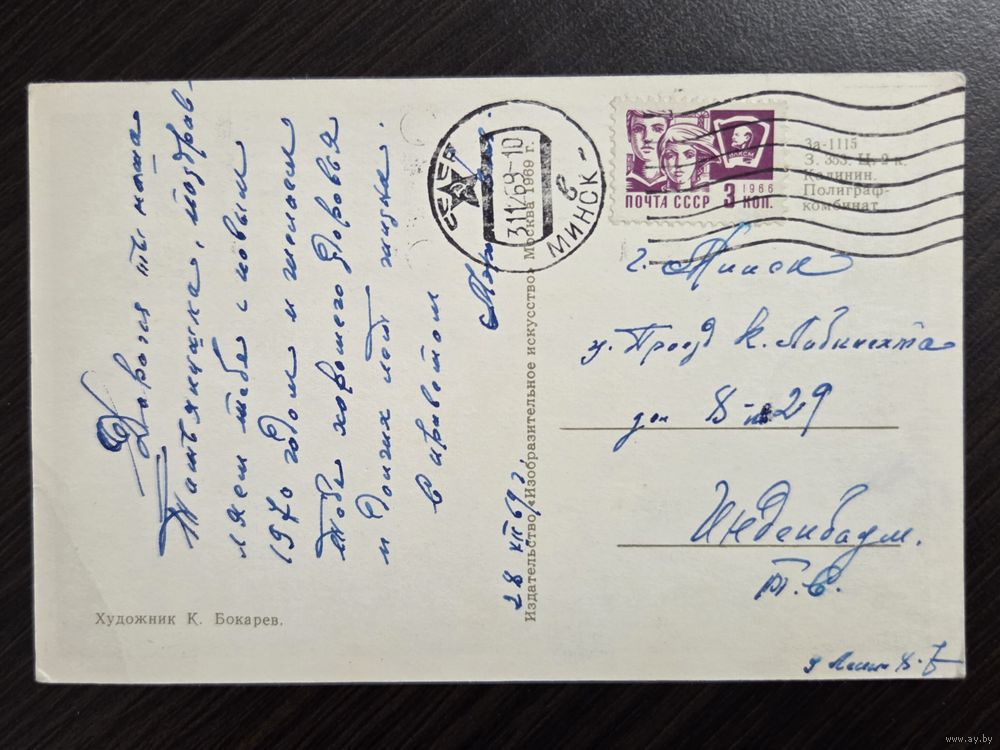 Дорогая ты наша
Татьянушка, поздрав-
ляем тебя с новым
1970 годом и желаем
тебе хорошего здоровья
и долгих лет жизни.
с приветом
28 XII 69 г.
Художник К. Бокарев.
Издательство «Изобразительное искусство» Москва 1969 г.
СССР
31 12 69-10
МИНСК
ВЛКСМ
1966
ПОЧТА СССР 3 КОП.
За-1115
З. 353. Ц. 2 к.
Калинин.
Полиграф-
комбинат
г. Минск
у. Проезд К. Либкнехта
дом 8-29
Инденбаум.
Т. С.
www.ay.by